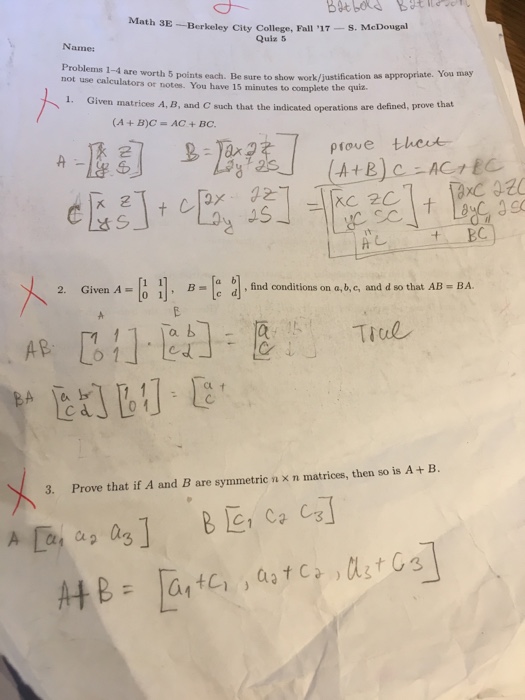 Math 3E — Berkeley City College, Fall '17 — S. McDougal
Quiz 5
Name:
Problems 1–4 are worth 5 points each. Be sure to show work/justification as appropriate. You may
not use calculators or notes. You have 15 minutes to complete the quiz.
1. Given matrices A, B, and C such that the indicated operations are defined, prove that
(A + B)C = AC + BC.
prove that
A = [x z
y s]
B = [2x 2z
2y 2s]
(A+B)C = AC+BC
C [x z
y s] + C [2x 2z
2y 2s] = [xc zc
yc sc] + [2xc 2zc
2yc 2sc]
"
AC + BC
2. Given A = [1 1
0 1], B = [a b
c d], find conditions on a, b, c, and d so that AB = BA.
A B
AB: [1 1
0 1] · [a b
c d] = [a
c
True
BA [a b
c d] [1 1
0 1] = [a +
c
3. Prove that if A and B are symmetric n x n matrices, then so is A + B.
A [a1 a2 a3] B [c1 c2 c3]
A+B = [a1+c1, a2+c2, a3+c3]